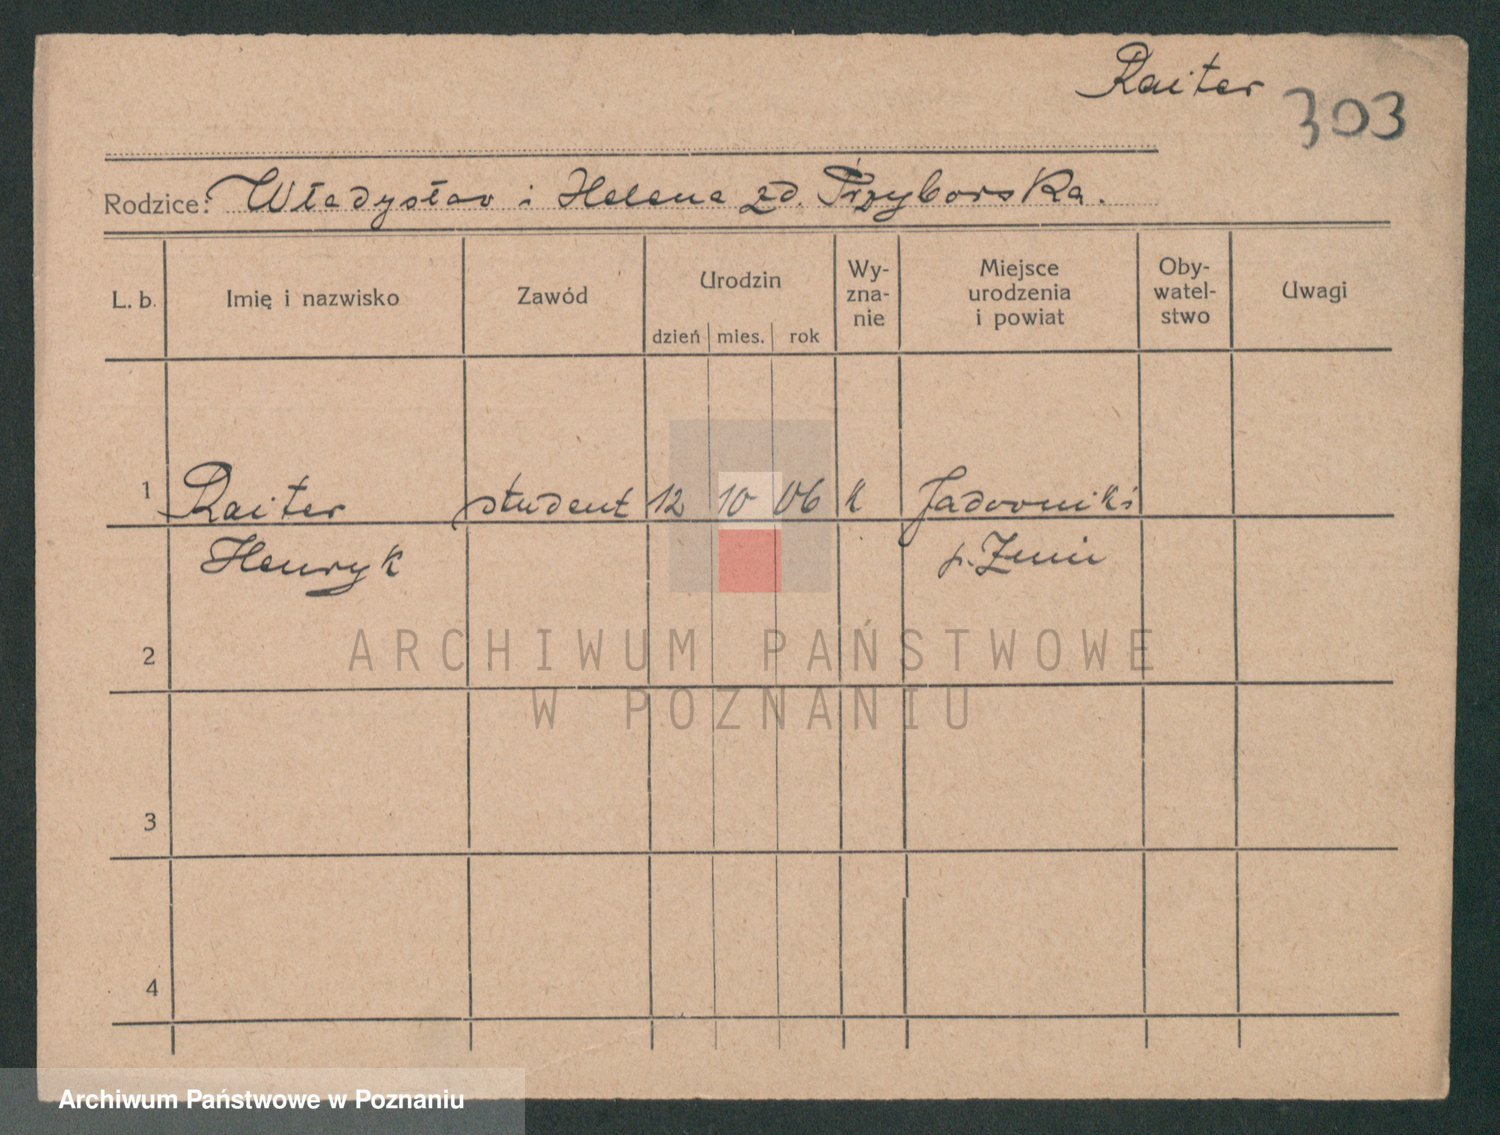 Raiter 303
Rodzice: Władysław i Helena zd. Przyborska.
L. b. Imię i nazwisko Zawód Urodzin Wy-zna-nie Miejsce urodzenia i powiat Oby-watel-stwo Uwagi
dzień mies. rok
1 Raiter student 12 10 06 k Jadowniki
Henryk p. Żnin
2
ARCHIWUM PAŃSTWOWE
W POZNANIU
3
4
Archiwum Państwowe w Poznaniu